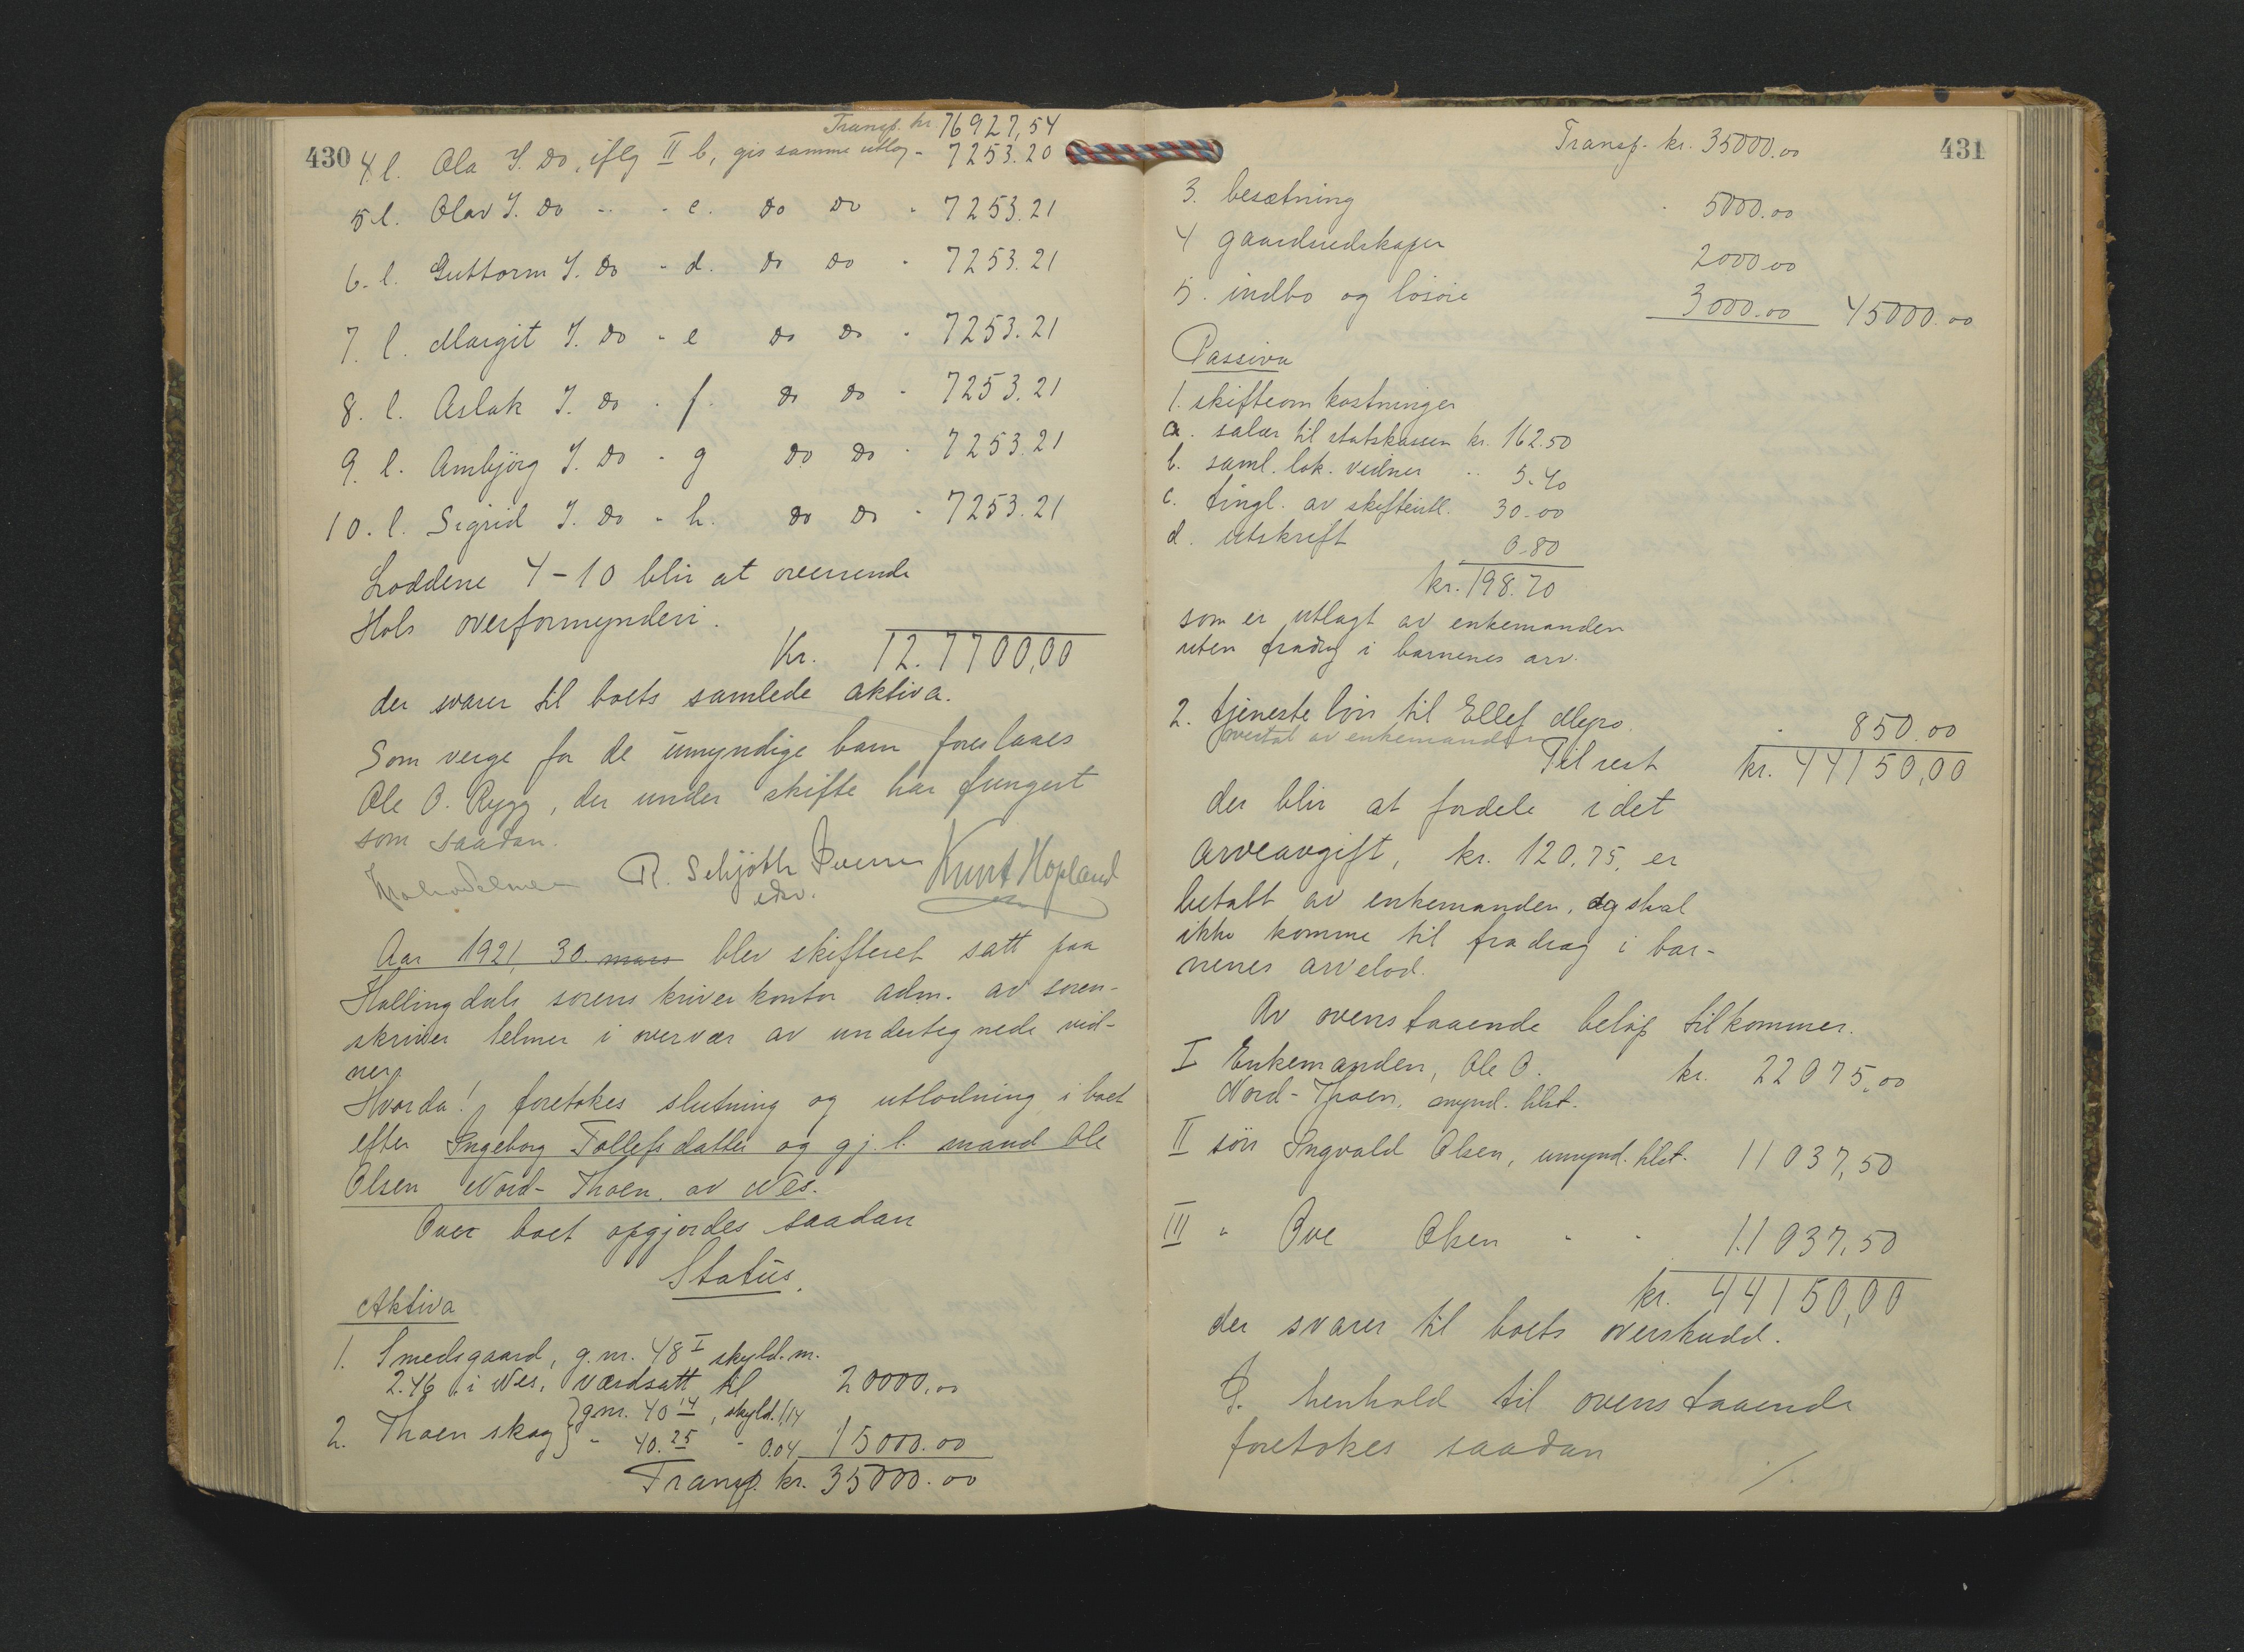 Transp. kr. 76927,54
430
4 l. Ola T. do, iflg II b, gis samme utlæg - 7253.20
5 l. Olav T. do - - c. do do - 7253.21
6. l. Guttorm T. do - d. do do - 7253.21
7. l. Margit T. do - e do do - 7253.21
8. l. Aslak T. do - f. do do - 7253.21
9. l. Ambjörg T. do - g do do - 7253.21
10. l. Sigrid T. do - h. do do - 7253.21
Loddene 4-10 blir at oversende
Hols overformynderi.
Kr. 12.7700,00
der svarer til boets samlede aktiva.
Som verge for de umyndige barn foreslaaes
Ole O. Rygg, der under skifte har fungert
som saadan.
R. Schjöth Iversen
edsv.
Knut Hopland
Aar 1921, 30. mars blev skifteret satt paa
Hallingdals sorenskriverkontor adm. av soren-
skriver Selmer i overvær av undertegnede vid-
ner.
Hvorda! foretokes slutning og utlodning i boet
efter Ingeborg Tollefsdatter og gj. l. mand Ole
Olsen Nord-Thoen av Nes.
Over boet opgjordes saadan
Status.
Aktiva
1. Smedsgaard, g.nr. 48 I skyld. m.
2.46 i Nes, værdsatt til 20000.00
2. Thoen skog } gnr. 40 14, skyld. 1,14
" 40. 25 - 0.04 15000.00
Transp. kr. 35000.00
Transp. kr. 35000.00
431
3. besætning - 5000.00
4 gaardsredskaper 2000.00
5. indbo og lösöre 3000.00 45000.00
Passiva
1. skifteomkostninger
a. salær til statskassen kr. 162.50
b. saml. lok. vidner .. 5.40
c. tingl. av skifteutl. 30.00
d. utskrift 0.80
kr. 198.70
som er utlagt av enkemanden
uten fradrag i barnenes arv.
2. tjenesteløn til Ellef - 850.00
overtat av enkemanden
Til rest kr. 44150,00
der blir at fordele idet
arveavgift, kr. 120.75, er
betalt av enkemanden, og skal
ikke komme til fradrag i bar-
nenes arvelod.
Av ovenstaaende beløp tilkommer.
I Enkemanden, Ole O. kr. 22075,00
Nord-Thoen, mynd. tilst.
II sön Ingvald Olsen, umynd. tilst. 11037,50
III " Ove Olsen " " 11037,50
kr. 44150,00
der svarer til boets overskudd.
I henhold til ovenstaaende
foretokes saadan
./.